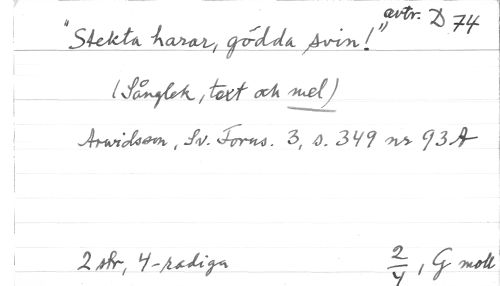 avtr. D 74
"Stekta harar, gödda svin!"
(Sånglek, text och mel)
Arwidsson, Sv. Forns. 3, s. 349 nr 93A
2 str, 4-radiga 2/4, G moll